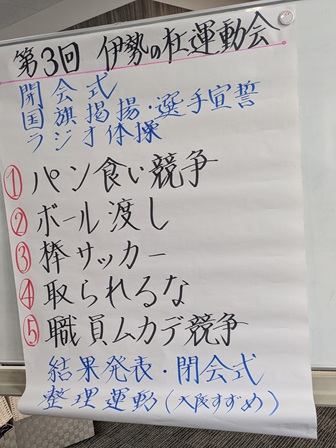 第3回 伊勢の杜運動会
開会式
国旗掲揚・選手宣誓
ラジオ体操
① パン食い競争
② ボール渡し
③ 棒サッカー
④ 取られるな
⑤ 職員ムカデ競争
結果発表・閉会式
整理運動(入浴すずめ)